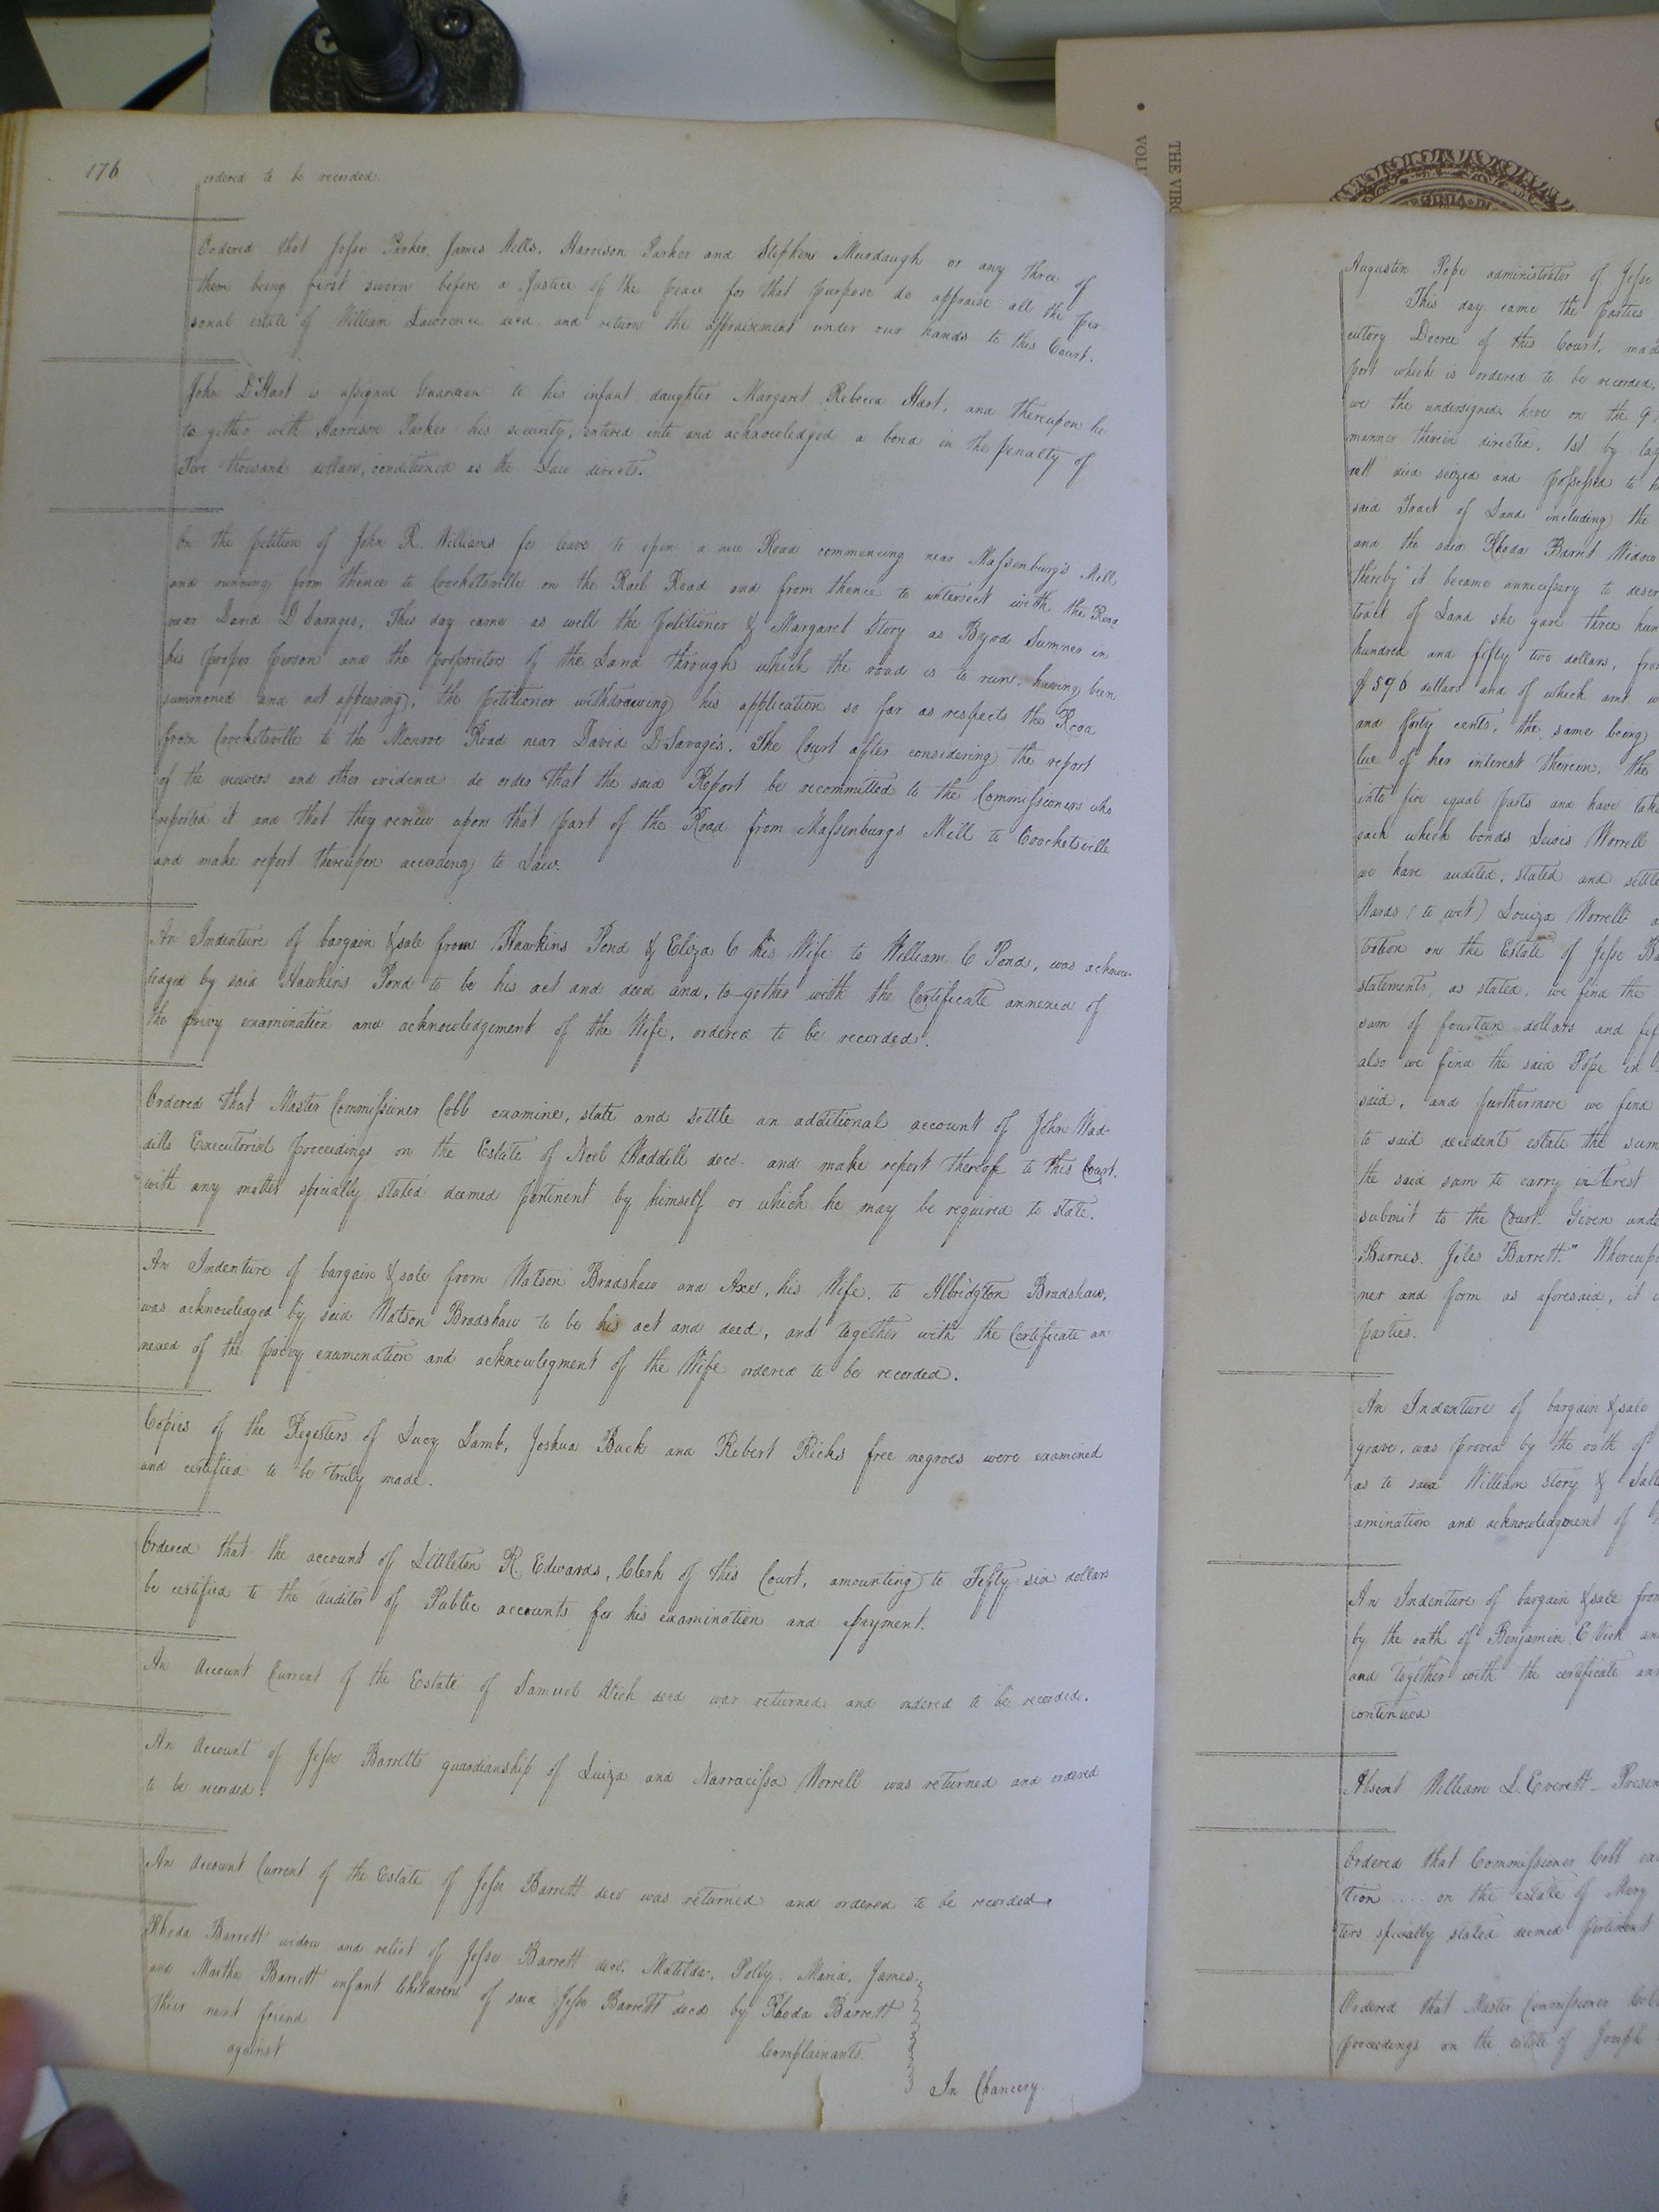 176
ordered to be recorded.
Ordered that Jesse Parker, James Wells, Harrison Parker and Stephen Murdaugh or any three of
them being first sworn before a Justice of the peace for that purpose do appraise all the per
sonal estate of William Lawrence decd. and return the appraisement under our hands to this Court.
John D Hart is assigned Guardian to his infant daughter Margaret Rebecca Hart, and thereupon he
together with Harrison Parker his security, entered into and acknowledged a bond in the penalty of
thousand dollars, conditioned as the Law directs.
On the petition of John R. Williams for leave to open a new Road commencing near Massenburg's Mill,
and running form thence to Crocketsville on the Rail Road and from thence to intersect with the Road
near David D Savages; This day came as well the petitioner & Margaret Story as Byrd Sumner in
his proper person and the proprietors of the Land through which the road is to run, having been
summoned and not appearing, the petitioner withdrawing his application so far as respects the Road
from Crocketsville to the Monroe Road near David D. Savage's. The Court after considering the report
of the viewers and other evidence do order that the said Report be recommitted to the Commissioners who
reported it and that they review upon that part of the Road from Massenburgs Mill to Crocketsville
and make report thereupon according to Law.
An Indenture of bargain & sale from Hawkins Pond & Eliza C his Wife to William C Pond, was acknow-
ledged by said Hawkins Pond to be his act and deed and, to-gether with the Certificate annexed of
the privy examination and acknowledgement of the Wife, ordered to be recorded.
Ordered that Master Commissioner Cobb examine, state and settle an additional account of John Wad-
dills Executorial proceedings on the Estate of Noel Waddill decd. and make report thereof to this Court.
with any matter specially stated deemed pertinent by himself or which he may be required to state.
An Indenture of bargain & sale from Watson Bradshaw and Axey, his Wife, to Albridgton Bradshaw,
was acknowledged by said Watson Bradshaw to be his act and deed, and together with the Certificate an-
nexed of the privy examination and acknowlegment of the Wife ordered to be recorded.
Copies of the Registers of Lucy Lamb, Joshua Buck and Robert Ricks free negroes were examined
and certified to be truly made.
Ordered that the account of Littleton R. Edwards, Clerk of this Court, amounting to Fifty six dollars
be certified to the Auditor of Public accounts for his examination and payment.
An Account Current of the Estate of Samuel Vick decd was returned and ordered to be recorded.
An Account of Jesse Barretts guardianship of Luiza and Narracissa Worrell was returned and ordered
to be recorded.
An Account Current of the Estate of Jesse Barrett decd was returned and ordered to be recorded
Rhoda Barrett widow and relict of Jesse Barrett decd. Matilda, Polly, Maria, James,
and Martha Barrett infant Children of said Jesse Barrett decd by Rhoda Barrett
their next friend
against Complainants.
In Chancery.
THE VIRG
VOL
VIRGINIA
Augustin Pope administrator of Jesse
This day came the parties
cutory Decree of this Court, made
port which is ordered to be recorded,
we the undersigned, have on the 9
manner therein directed, 1st by
rett died seized and possessed to
said Tract of Land including the
and the said Rhoda Barret Widow
thereby it became unnecessary to
tract of Land she gave three hun
hundred and fifty two dollars, from
$596 dollars and of which amt
and forty cents, the same being
lue of her interest therein, the
into five equal parts and have take
each which bonds Lewis Worrell
we have audited, stated and settle
Wards (to wit) Louiza Worrell
tration on the Estate of Jesse Ba
statements, as stated, we find the
sum of fourteen dollars and fif
also we find the said Pope in
said, and furthermore we find
to said decedents estate the sum
the said sum to carry interest
submit to the Court. Given unde
Barnes. Jiles Barrett." Whereup
ner and form as aforesaid, it
parties.
An Indenture of bargain & sale
grave, was proved by the oath of
as to said William Story &
amination and acknowledgment of
An Indenture of bargain & sale from
by the oath of Benjamin E Vick and
and together with the certificate ann
continued
Absent William L. Everett - Presen
Ordered that Commissioner Cobb ex
tion on the estate of Mary
ters specially stated deemed pertinent
Ordered that Master Commissioner Cobb
proceedings on the estate of Joseph